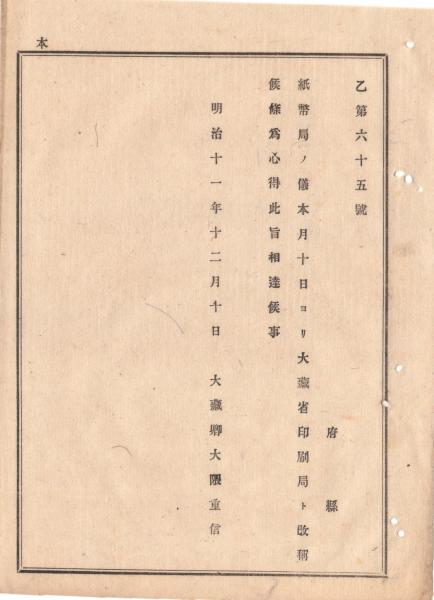 本
乙第六十五號
府縣
紙幣局ノ儀本月十日ヨリ大藏省印刷局ト改稱
候條爲心得此旨相達候事
明治十一年十二月十日 大藏卿大隈重信